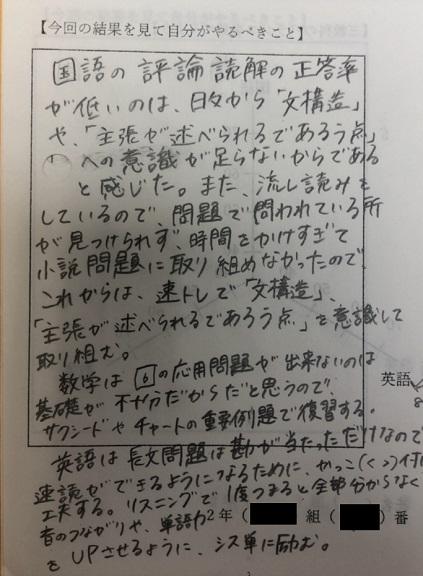 【今回の結果を見て自分がやるべきこと】
国語の評論読解の正答率
が低いのは、日々から「文構造」
や、「主張が述べられるであろう点」
への意識が足らないからである
と感じた。また、流し読みを
しているので、問題で問われている所
が見つけられず、時間をかけすぎて
小説問題に取り組めなかったので、
これからは、速トレで「文構造」、
「主張が述べられるであろう点」を意識して
取り組む。
数学は6の応用問題が出来ないのは
基礎が不十分だからだと思うので、
サクシードやチャートの重要例題で復習する。
英語は長文問題は勘が当たっただけなので
速読ができるようになるために、かっこ(く、)付け
工夫する。リスニングで1度つまると全部分からなく
音のつながりや、単語力
をUPさせるように、シス単に励む。
英語
2年( 組( )番